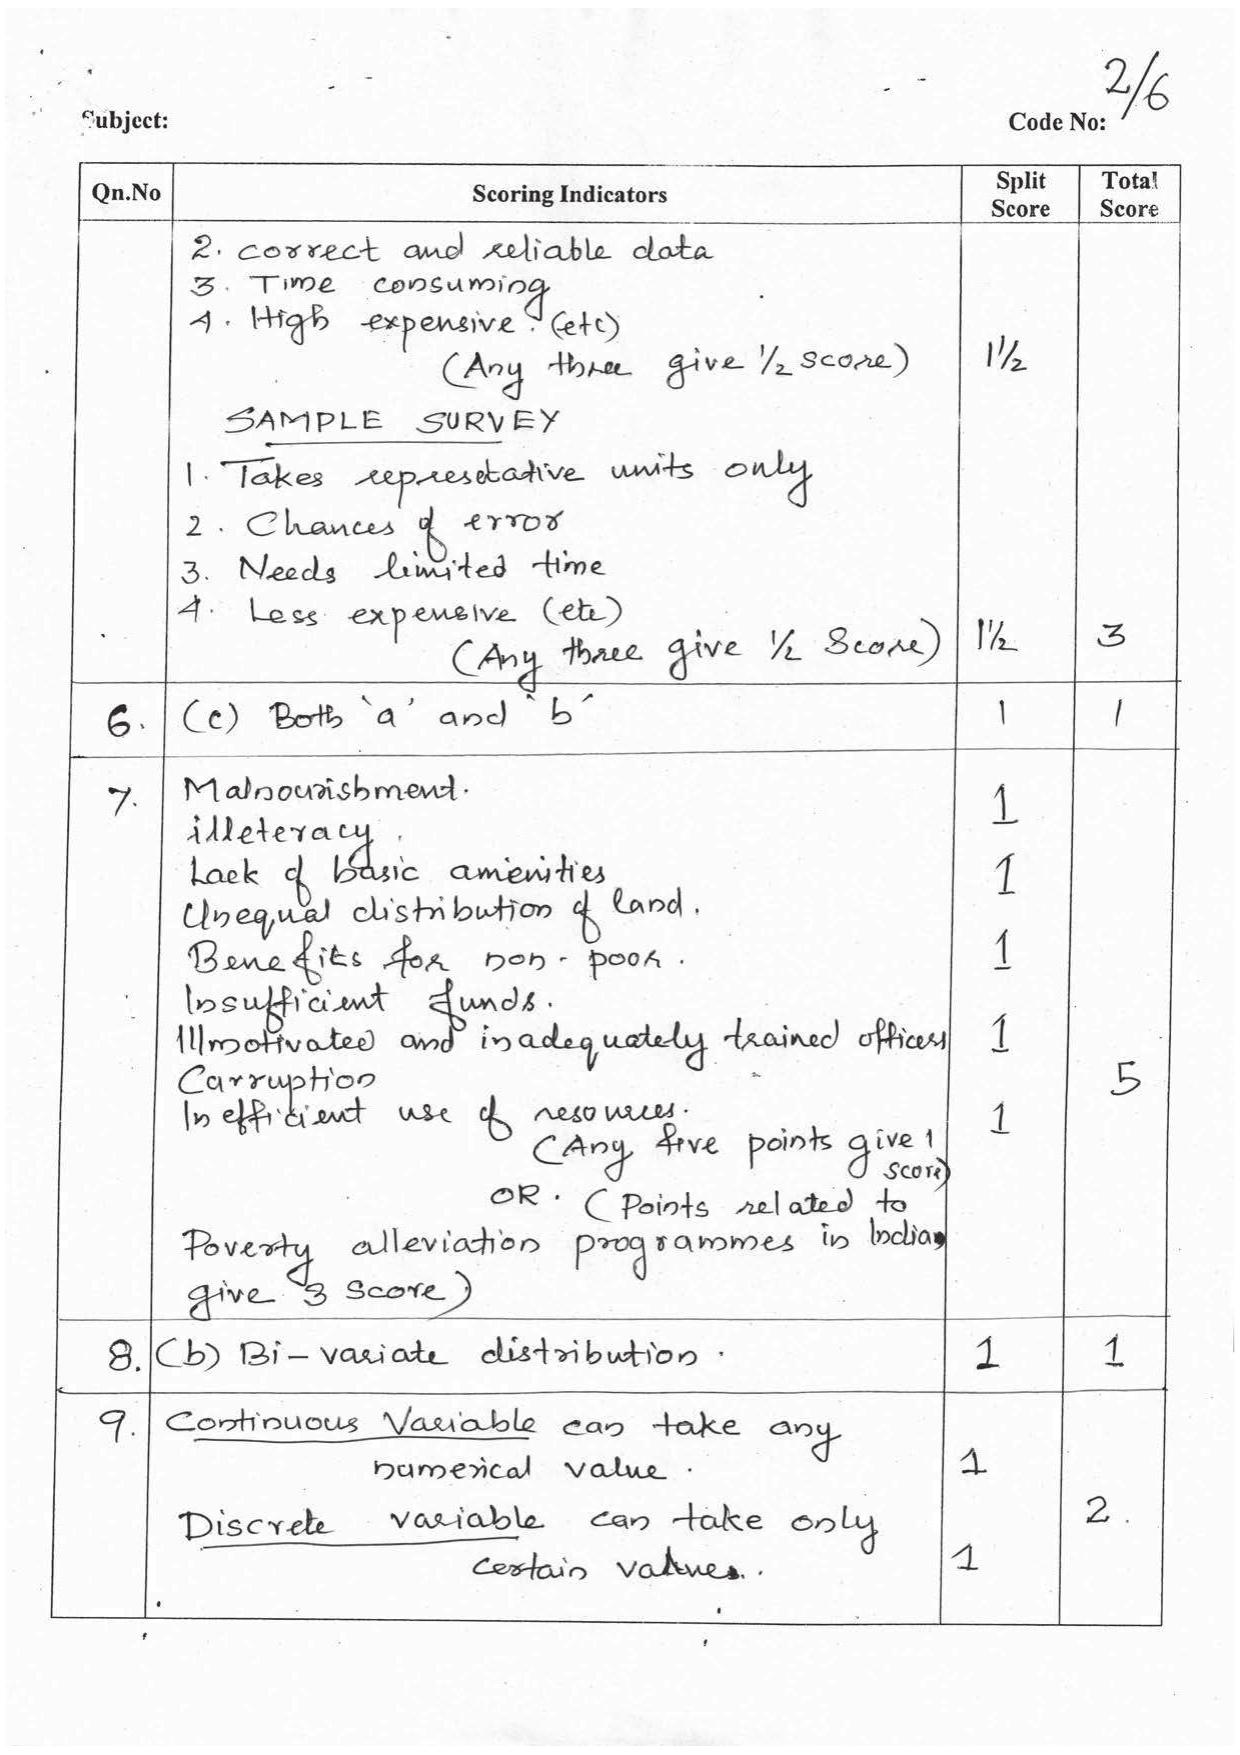 2/6
Subject:
Code No:
Qn.No Scoring Indicators Split Score Total Score
2. correct and reliable data
3. Time consuming
4. High expensive. (etc)
(Any three give 1/2 score) 1 1/2
SAMPLE SURVEY
1. Takes represetative units only
2. Chances of error
3. Needs limited time
4. Less expensive (etc)
(Any three give 1/2 Score) 1 1/2 3
6. (c) Both 'a' and 'b' 1 1
7. Malnourishment. 1
illeteracy.
Lack of basic amenities 1
Unequal distribution of land.
Benefits for non-poor. 1
Insufficient funds.
Illmotivated and inadequately trained officers 1
Carruption 5
In efficient use of resources. 1
(Any five points give 1
score)
OR. (Points related to
Poverty alleviation programmes in India
give 3 Score)
8. (b) Bi-variate distribution. 1 1
9. Continuous Variable can take any
numerical value. 1
Discrete variable can take only 2.
certain values. 1